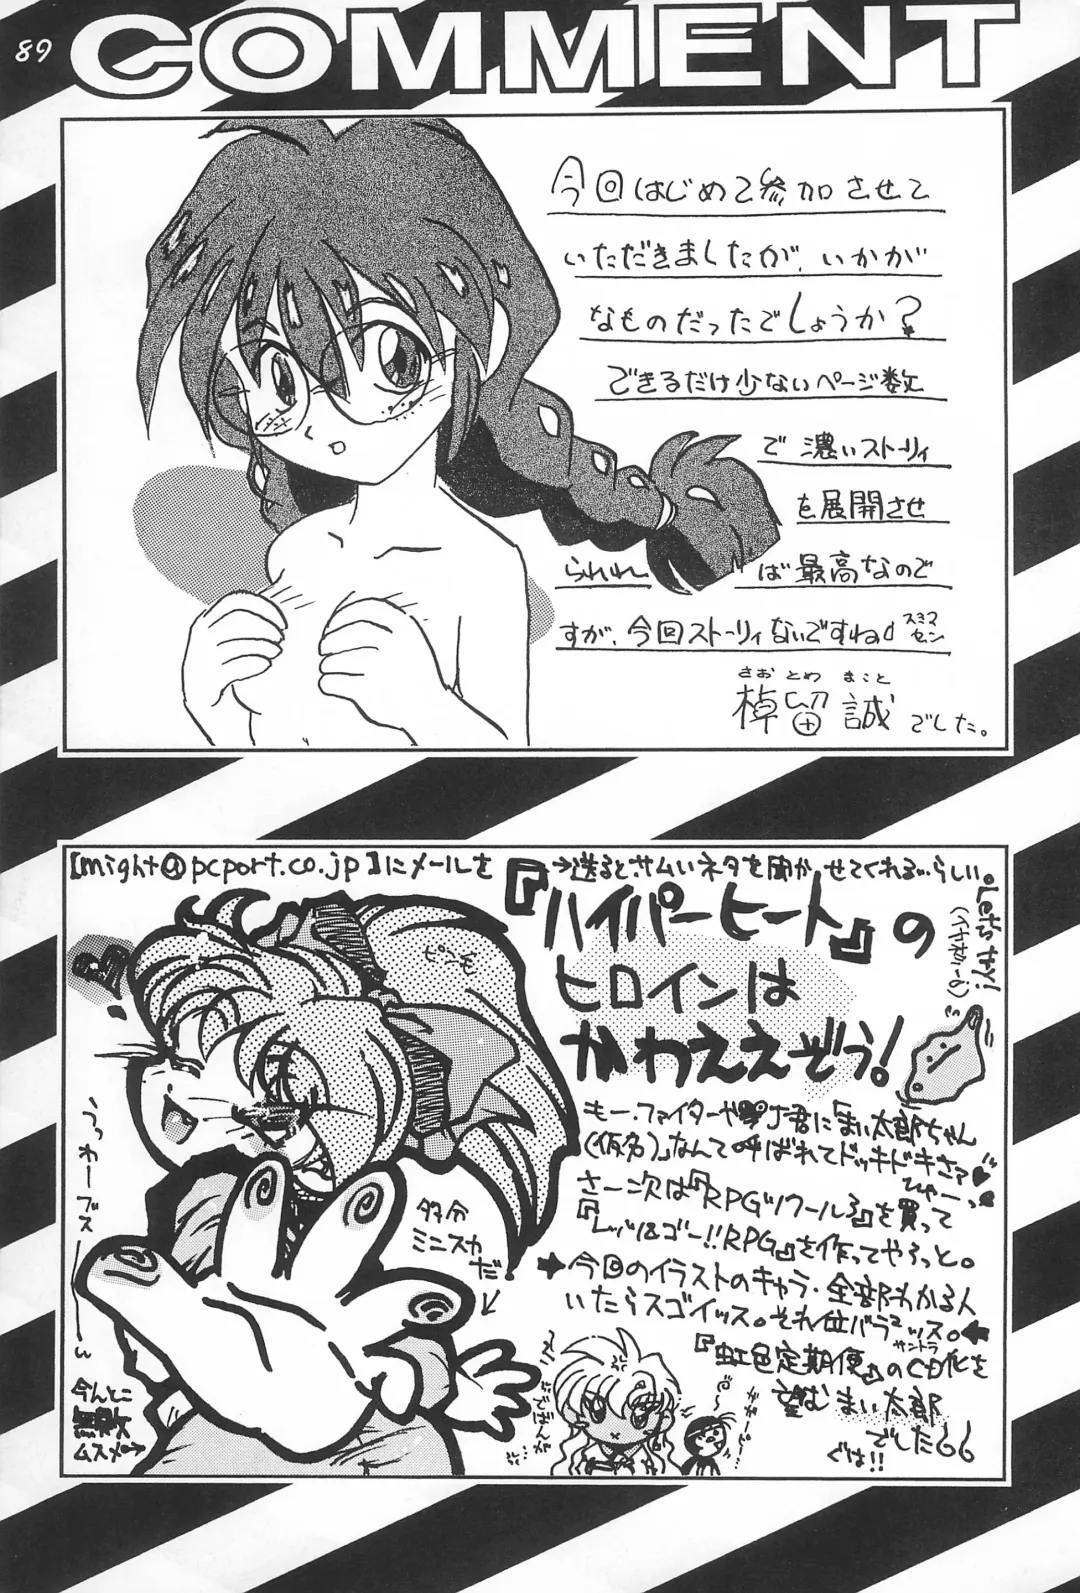 89
COMMENT
今回はじめて参加させて
いただきましたが、いかが
なものだったでしょうか?
できるだけ少ないページ数
で濃いストーリィ
を展開させ
られれば最高なので
すが、今回ストーリィないですねぇ スミマセン
さおとめ まこと
棹留 誠 でした。
【might@pcport.co.jp】にメールを
→送るとサムいネタを聞かせてくれる…らしい。
Let's
『ハイパーヒート』の
ヒロインは
かわええぞう!
ピン毛
もー、ファイターや
J君に「まい太郎ちゃん
(仮名)」なんて呼ばれてドッキドキさァ♥
ひゃーっ
さー次は『RPGツクール3』を買って
『レッツゴー!!RPG』を作ってやろっと。
今回のイラストのキャラ・全部わかる人
いたらスゴイッス。それ位バラバラッス。
『虹色定期便』のCD化を
サントラ
望むまい太郎
でした
ぐは!!
うっわーブス
多分
ミニスカ
だ!
今んとこ
無敵
ムスメ→